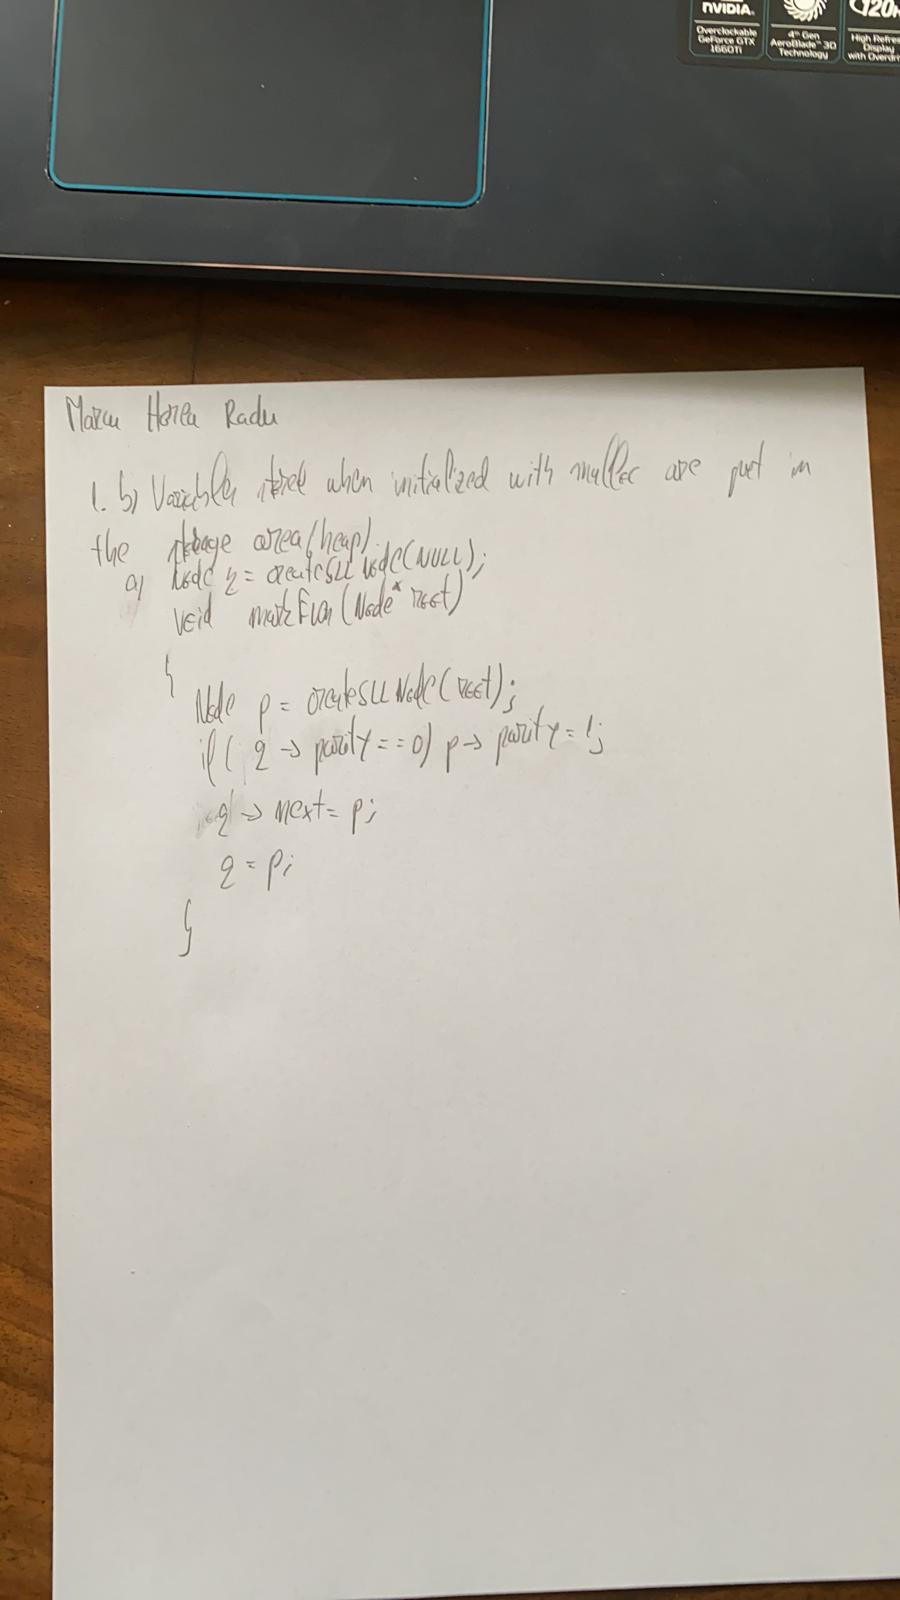 NVIDIA.
Overclockable
GeForce GTX
1660Ti
4th Gen
AeroBlade™ 3D
Technology
120H
High Refres
Display
with Overdri
Marcu Horea Radu
1. b) Variables when initialized with malloc are put in
the storage area (heap).
a) Node q = createSLL Node(NULL);
void markEven (Node* root)
{
Node p = createSLLNode(root);
if( q -> parity == 0) p -> parity = 1;
q -> next = p;
q = p;
}